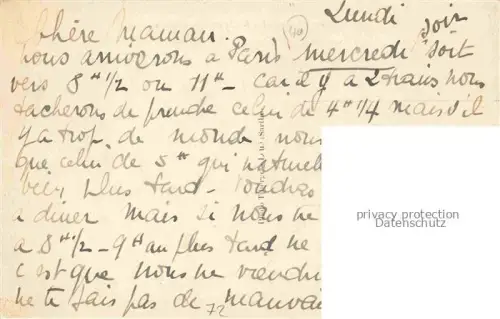 Lundi
Chère Maman. soir
nous arriverons à Paris mercredi soit
vers 8 H 1/2 ou 11 H - car il y a 2 trains nous
tacherons de prendre celui de 4 H 1/4 mais s'il
y a trop de monde nous
que celui de 5 H qui naturell
bien plus tard -
a diner mais si nous ne
a 8 H 1/2 - 9 H au plus tard ne
c'est que nous ne viendr
ne te fais pas de mauvai
72
privacy protection
Datenschutz